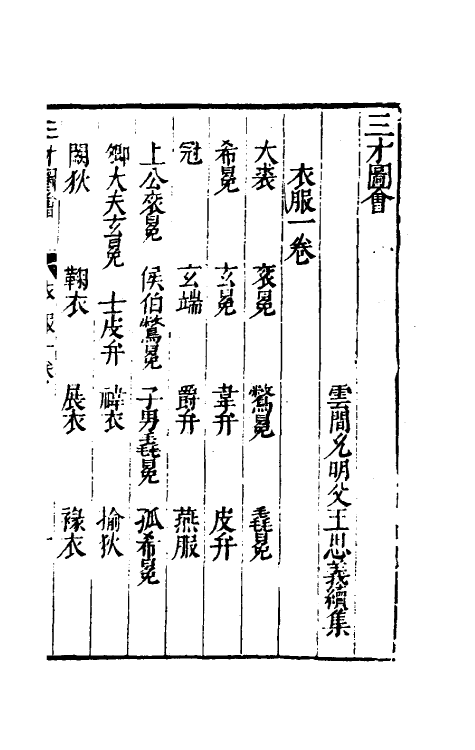 三才圖會
雲間允明父王思義續集
衣服一卷
大裘 衮冕 鷩冕 毳冕
希冕 玄冕 韋弁 皮弁
冠 玄端 爵弁 燕服
上公衮冕 侯伯鷩冕 子男毳冕 孤希冕
卿大夫玄冕 士皮弁 褘衣 揄狄
闕狄 鞠衣 展衣 褖衣
三才圖會 衣服一卷 一